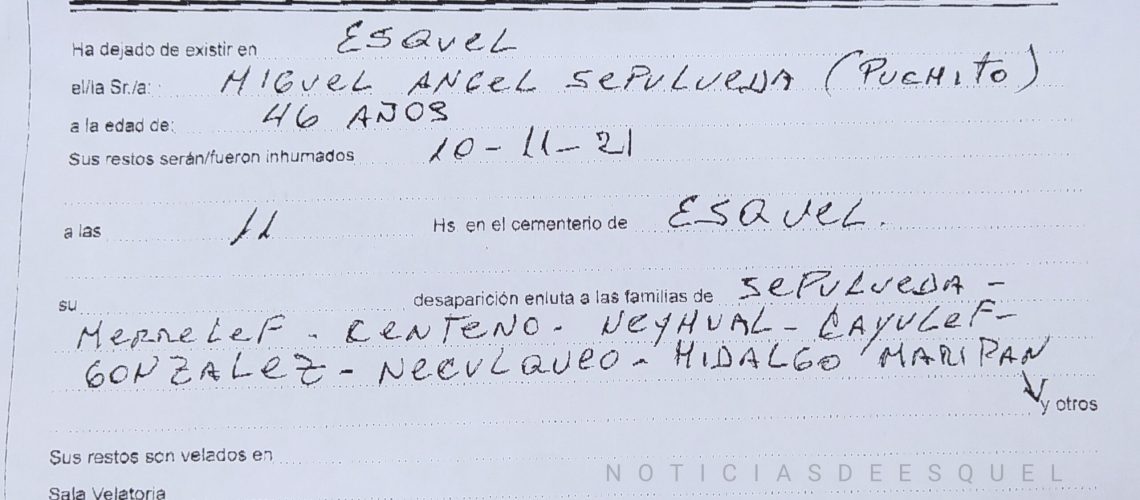 Ha dejado de existir en ESQUEL
el/la Sr./a: MIGUEL ANGEL SEPULVEDA (PUCHITO)
a la edad de: 46 AÑOS
Sus restos serán/fueron inhumados 10-11-21
a las 11 Hs en el cementerio de ESQUEL.
su desaparición enluta a las familias de SEPULVEDA -
MERRELEF - CENTENO - NEYHUAL - CAYULEF -
GONZALEZ - NECULQUEO - HIDALGO MARIPAN
y otros
Sus restos son velados en
Sala Velatoria
NOTICIASDEESQUEL